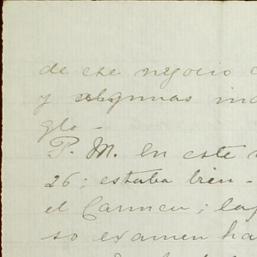 de ese negocio
y algunas
glo -
P. M. En este
26; estaba bien -
el Carmen;
so examen ha